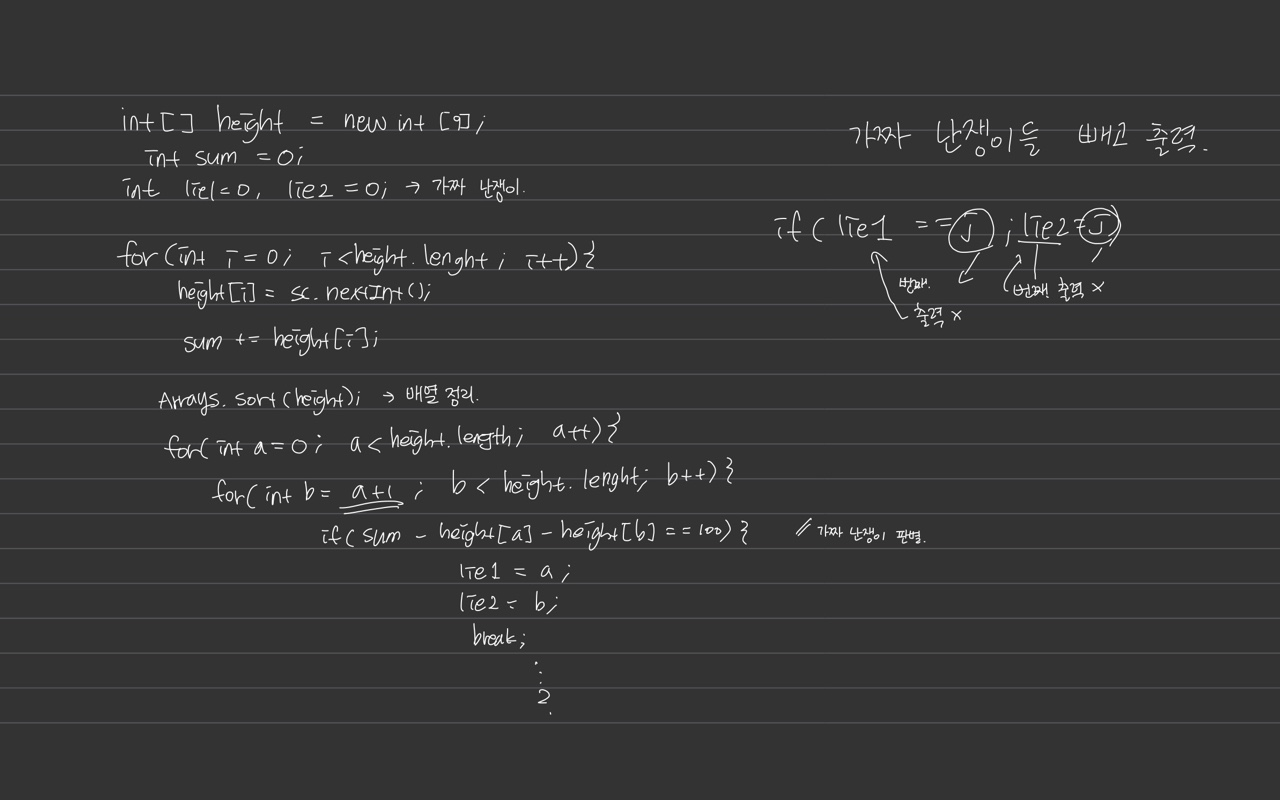 int[] height = new int [9];
int sum = 0;
int lie1=0, lie2 = 0; → 가짜 난쟁이.
for (int i = 0; i < height.lenght; i++) {
height[i] = sc.nextInt();
sum += height[i];
Arrays.sort(height); → 배열 정리.
for( int a = 0; a < height.length; a++) {
for( int b = a+1; b < height.lenght; b++) {
if( sum - height[a] - height[b] == 100) { // 가짜 난쟁이 판별.
lie1 = a;
lie2 = b;
break;
가짜 난쟁이들 빼고 출력.
if( lie1 == J ; lie2 = J)
번째. 출력 x
번째 출력 x